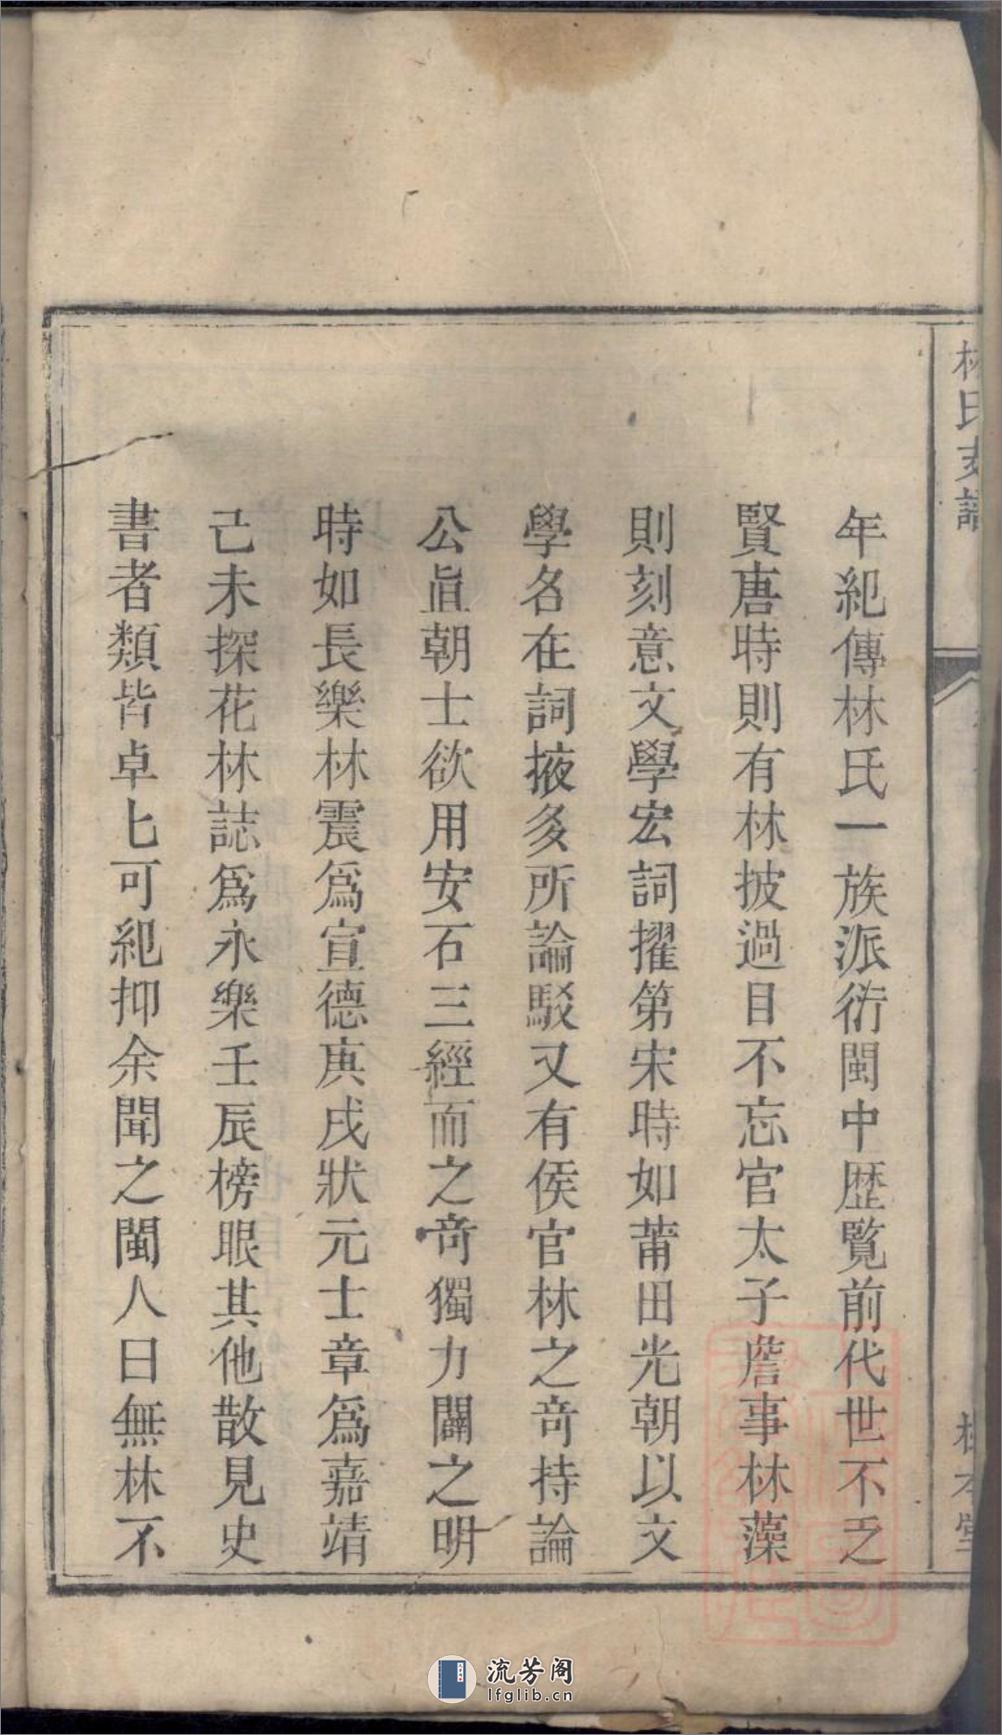 林氏支譜
年紀傳林氏一族派衍閩中歴覧前代世不乏
賢唐時則有林披過目不忘官太子詹事林藻
則刻意文學宏詞擢第宋時如莆田光朝以文
學名在詞掖多所論駁又有侯官林之竒持論
公眞朝士欲用安石三經而之竒獨力闢之明
時如長樂林震爲宣德庚戌狀元士章爲嘉靖
己未探花林誌爲永樂壬辰榜眼其他散見史
書者類皆卓匕可紀抑余聞之閩人曰無林不
流芳阁
lfglib.cn